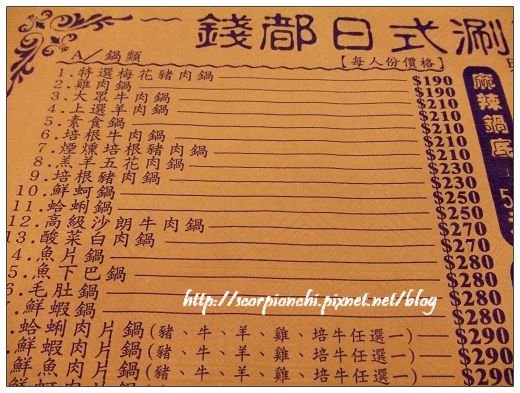 錢都日式涮
A/鍋類
【每人份價格】
1.特選梅花豬肉鍋 $190
2.雞肉鍋 $190
3.大眾牛肉鍋 $210
4.上選羊肉鍋 $210
5.素食鍋 $210
6.培根牛肉鍋 $210
7.煙燻培根豬肉鍋 $210
8.羔羊五花肉鍋 $230
9.培根豬肉鍋 $230
10.鮮蚵鍋 $250
11.蛤蜊鍋 $250
12.高級沙朗牛肉鍋 $270
13.酸菜白肉鍋 $270
4.魚片鍋 $280
5.魚下巴鍋 $280
6.毛肚鍋 $280
7.鮮蝦鍋 $280
.蛤蜊肉片鍋(豬、牛、羊、雞、培牛任選一) $290
.鮮蝦肉片鍋(豬、牛、羊、雞、培牛任選一) $290
鮮魚肉片鍋(豬、牛、羊、雞、培牛任選一) $290
麻辣鍋底
5
http://scorpionchi.pixnet.net/blog